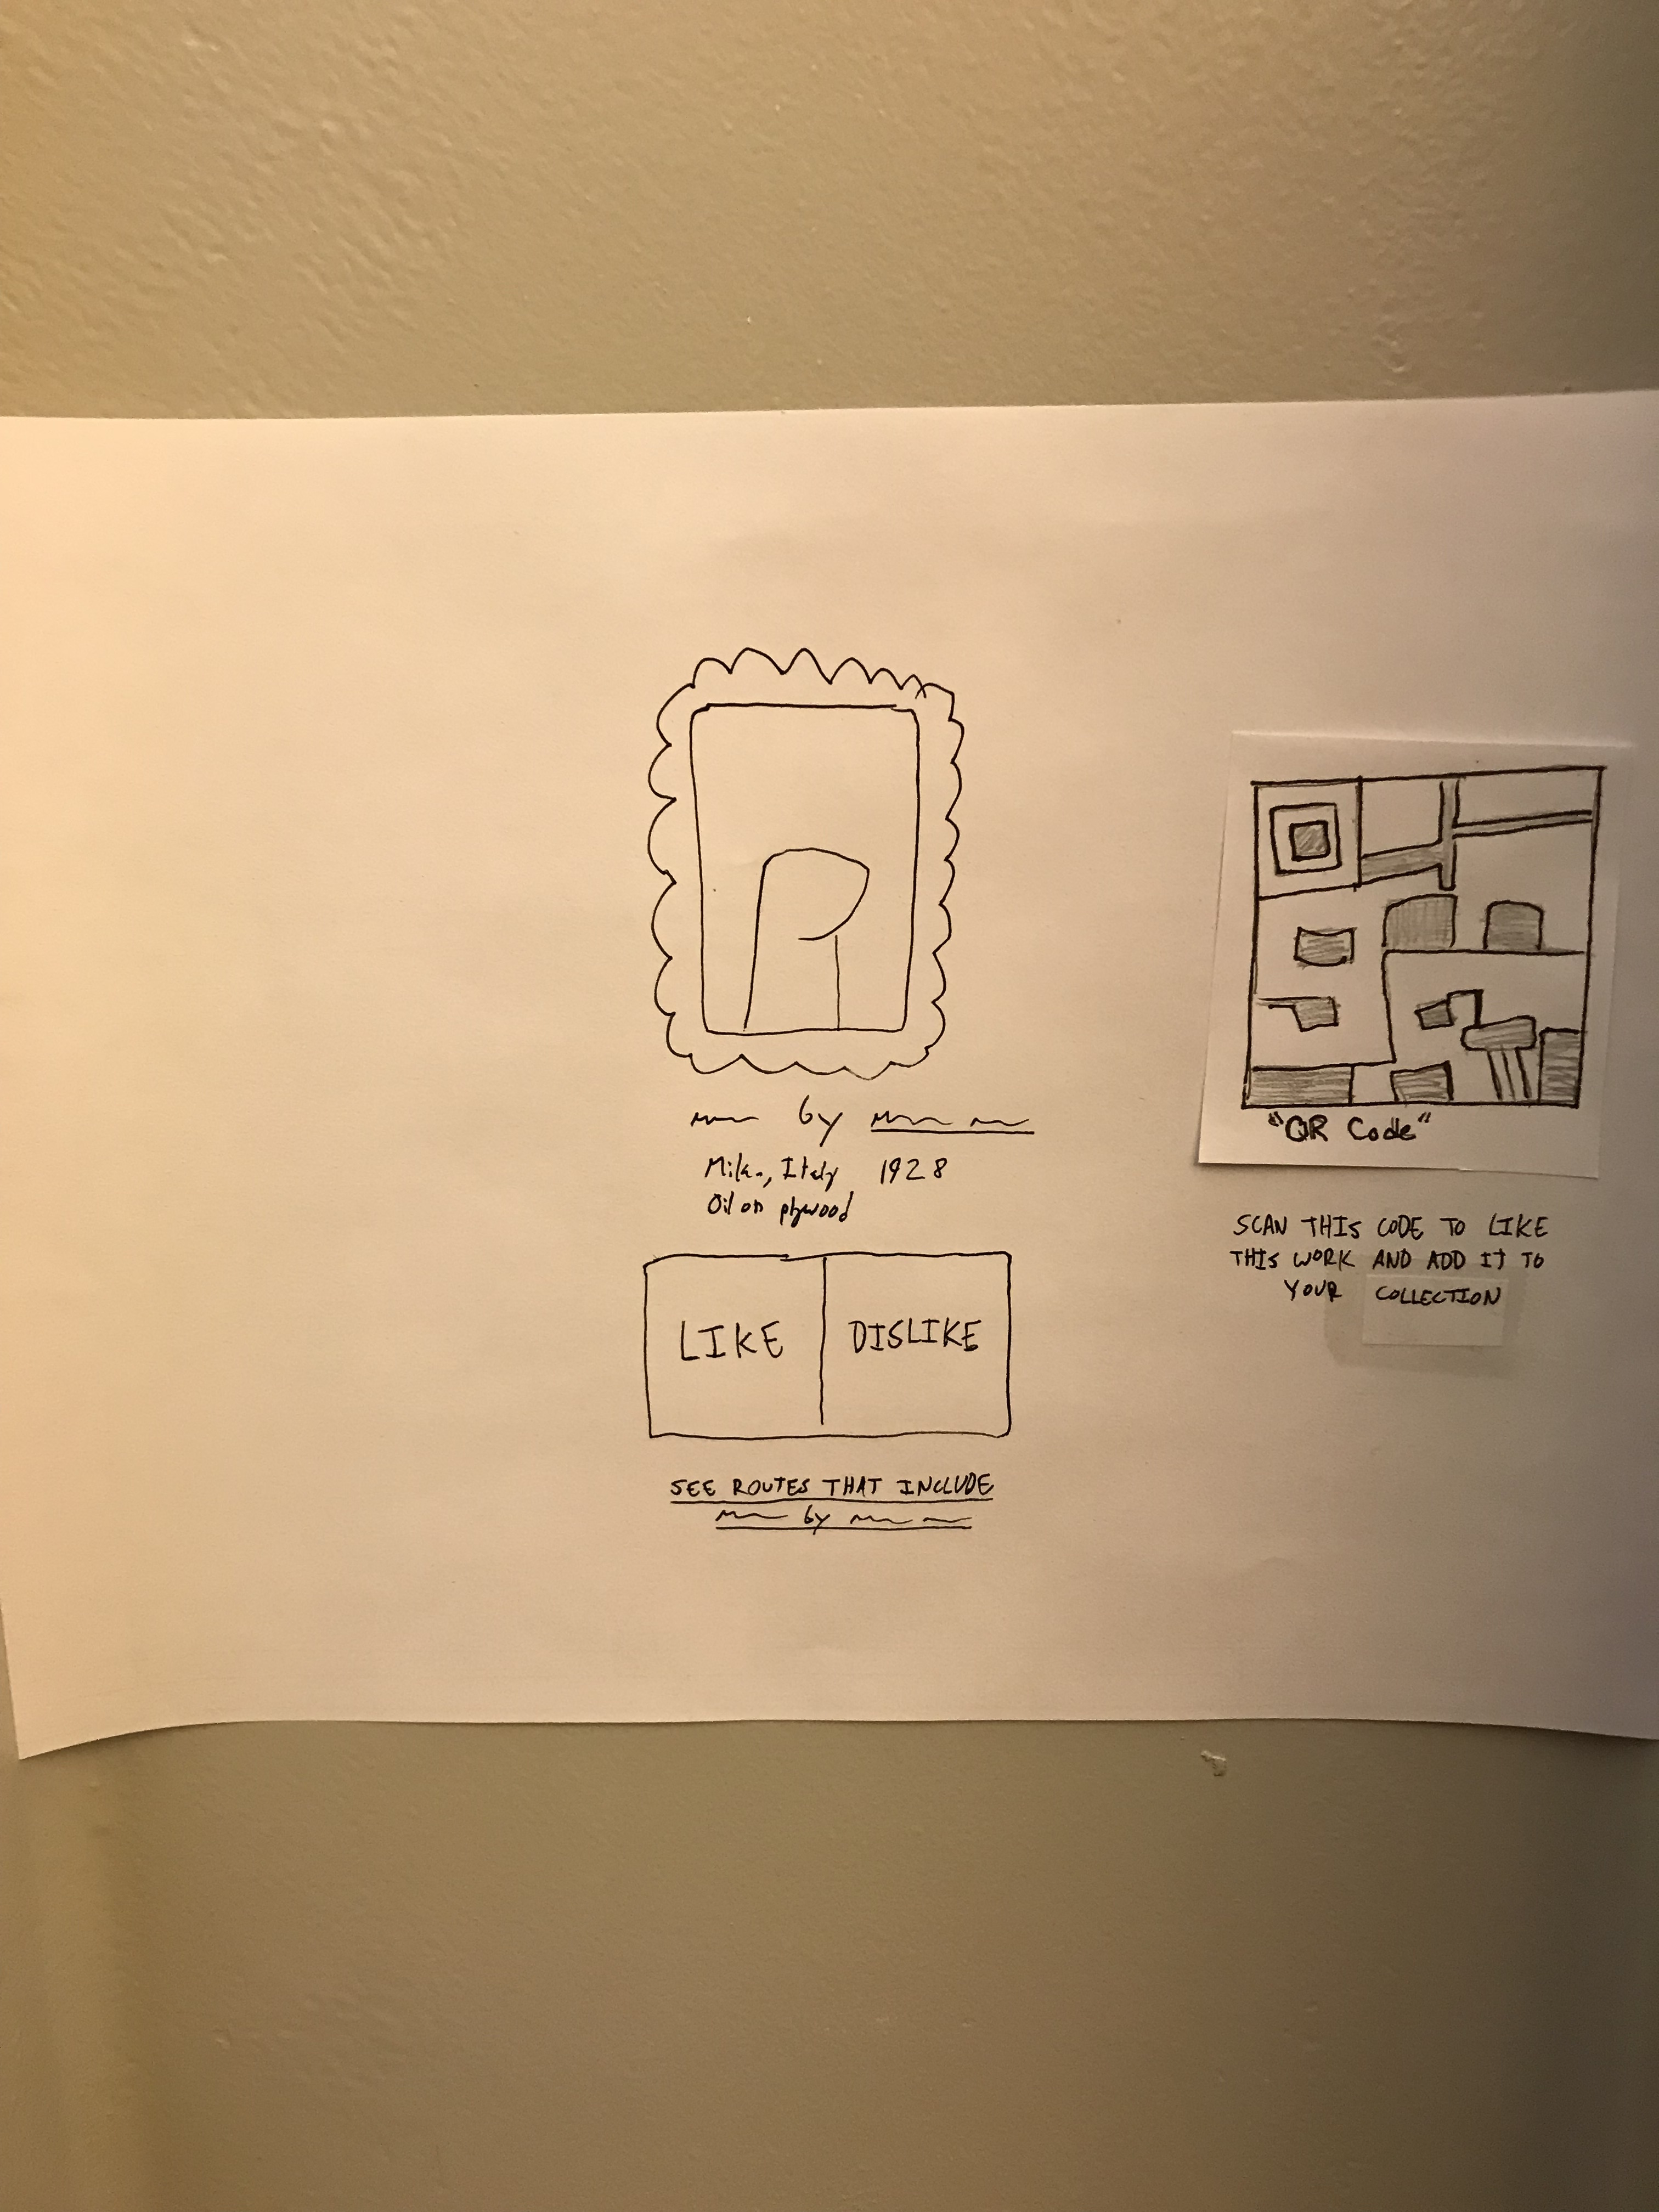 by
Italy 1928
Oil on plywood
LIKE DISLIKE
SEE ROUTES THAT INCLUDE
by
"QR Code"
SCAN THIS CODE TO LIKE
THIS WORK AND ADD IT TO
YOUR COLLECTION